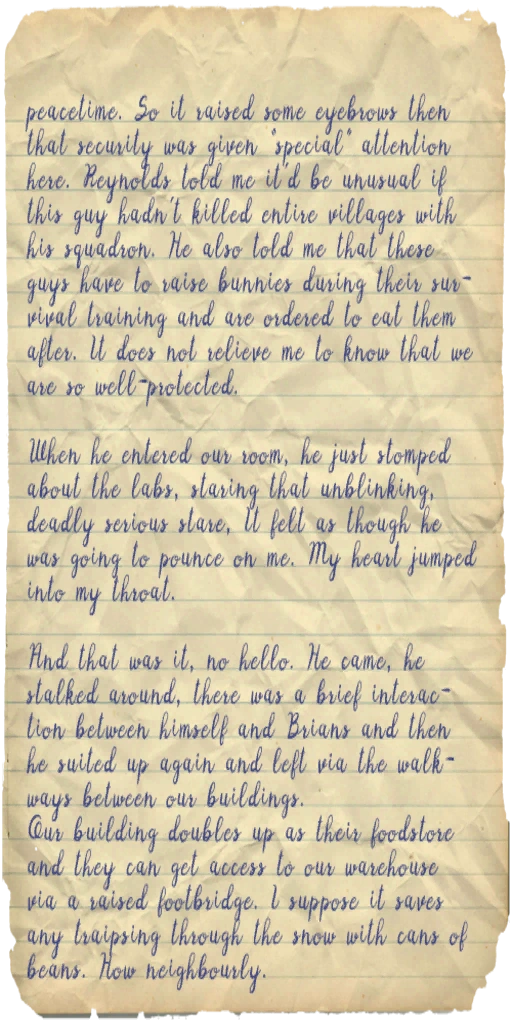 peacetime. So it raised some eyebrows then
that security was given "special" attention
here. Reynolds told me it'd be unusual if
this guy hadn't killed entire villages with
his squadron. He also told me that these
guys have to raise bunnies during their sur-
vival training and are ordered to eat them
after. It does not relieve me to know that we
are so well-protected.
When he entered our room, he just stomped
about the labs, staring that unblinking,
deadly serious stare, It felt as though he
was going to pounce on me. My heart jumped
into my throat.
And that was it, no hello. He came, he
stalked around, there was a brief interac-
tion between himself and Brians and then
he suited up again and left via the walk-
ways between our buildings.
Our building doubles up as their foodstore
and they can get access to our warehouse
via a raised footbridge. I suppose it saves
any traipsing through the snow with cans of
beans. How neighbourly.